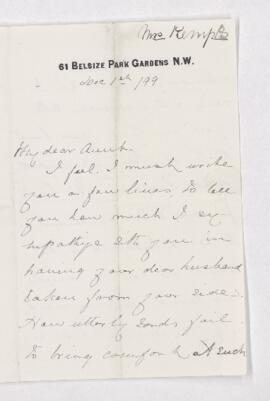 Mrs Kemp
61 BELSIZE PARK GARDENS N.W.
Dec 1st /99
My dear Aunt
I feel I must write
you a few lines, to tell
you how much I sy-
mpathize with you in
having your dear husband
taken from your side.
How utterly words fail
to bring comfort at such